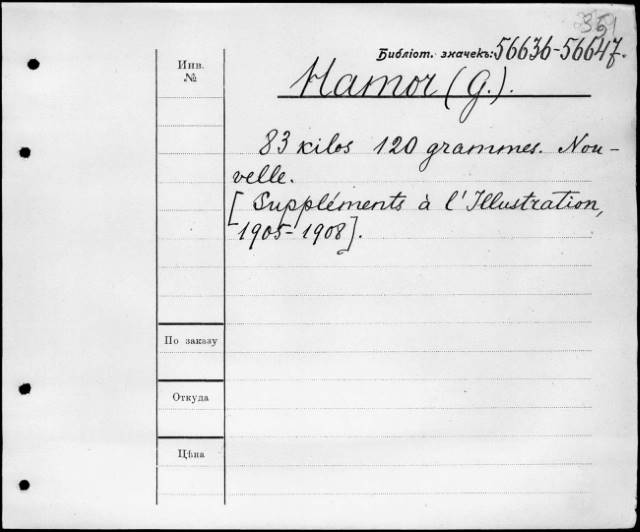 Библіот. значекъ: 56636-56647.
Инв.
№
Hamor (G.).
83 kilos 120 grammes. Nou-
velle.
[Suppléments à l'Illustration,
1905-1908].
По заказу
Откуда
Цѣна